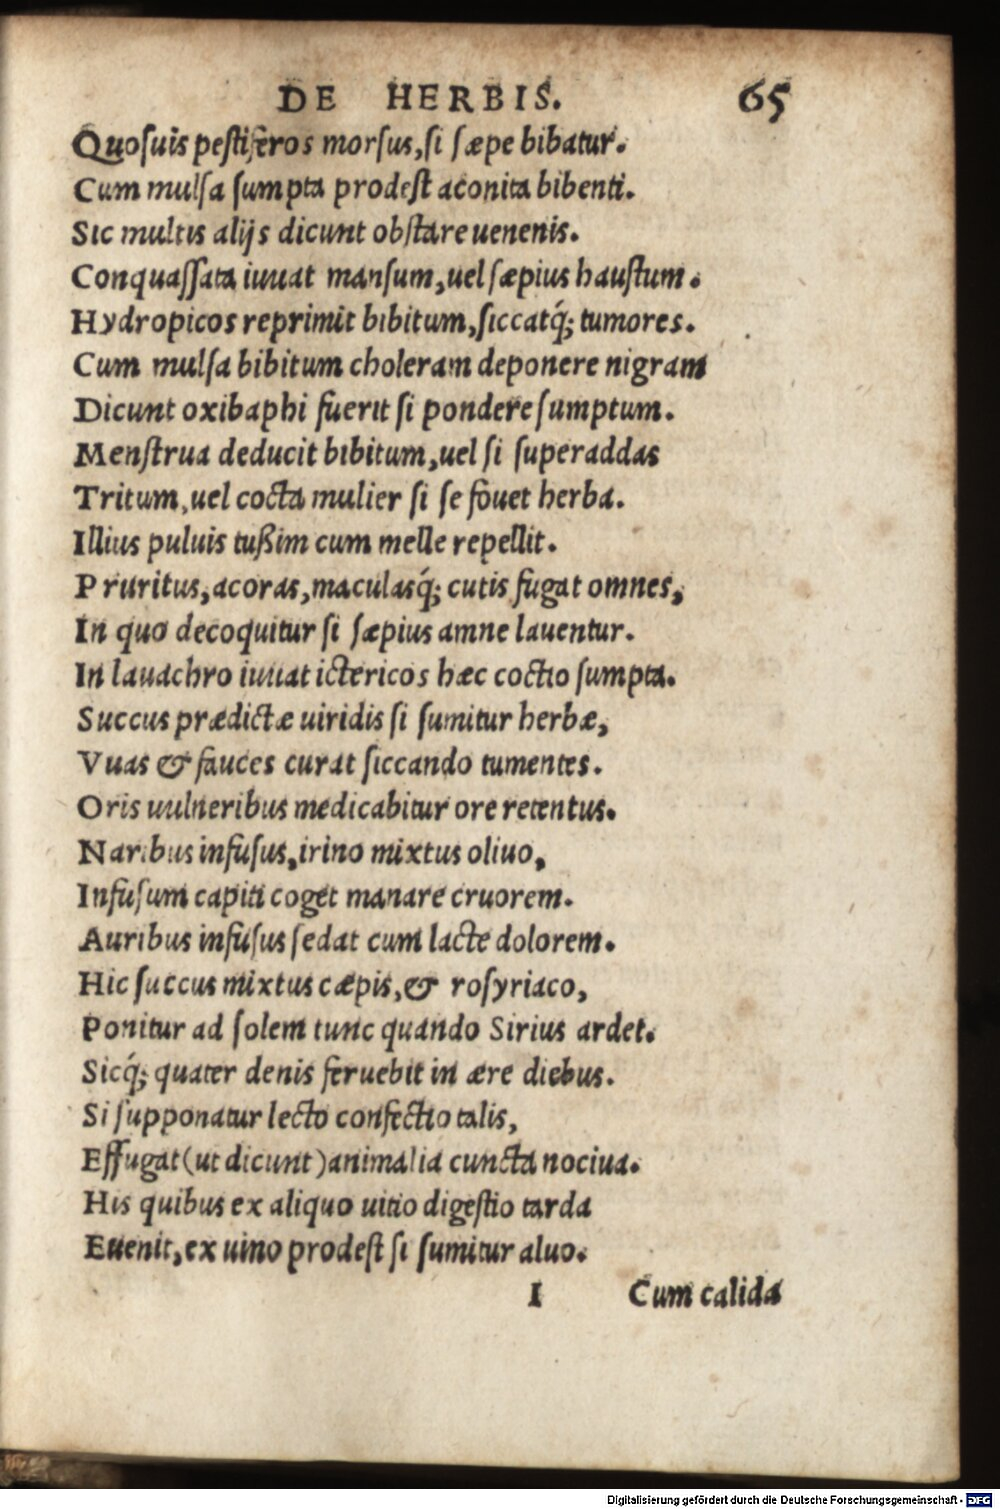 DE HERBIS. 65
Quosuis pestiferos morsus, si sæpe bibatur.
Cum mulsa sumpta prodest aconita bibenti.
Sic multis alijs dicunt obstare uenenis.
Conquassata iuuat mansum, uel sæpius haustum.
Hydropicos reprimit bibitum, siccatq́; tumores.
Cum mulsa bibitum choleram deponere nigram
Dicunt oxibaphi fuerit si pondere sumptum.
Menstrua deducit bibitum, uel si superaddas
Tritum, uel cocta mulier si se fouet herba.
Illius puluis tußim cum melle repellit.
Pruritus, acoras, maculasq́; cutis fugat omnes,
In quo decoquitur si sæpius amne lauentur.
In lauachro iuuat ictericos hæc coctio sumpta.
Succus prædictæ uiridis si sumitur herbæ,
Vuas & fauces curat siccando tumentes.
Oris uulneribus medicabitur ore retentus.
Naribus infusus, irino mixtus oliuo,
Infusum capiti coget manare cruorem.
Auribus infusus sedat cum lacte dolorem.
Hic succus mixtus cæpis, & rosyriaco,
Ponitur ad solem tunc quando Sirius ardet.
Sicq́; quater denis feruebit in ære diebus.
Si supponatur lecto confectio talis,
Effugat (ut dicunt) animalia cuncta nociua.
His quibus ex aliquo uitio digestio tarda
Euenit, ex uino prodest si sumitur aluo.
I Cum calida
Digitalisierung gefördert durch die Deutsche Forschungsgemeinschaft - DFG